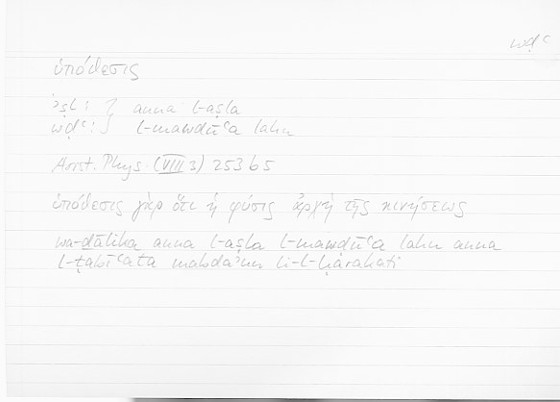 wḍʿ
ὑπόθεσις
ʾṣl : } anna l-aṣla
wḍʿ : } l-mawḍūʿa lahu
Arist. Phys. (VIII 3) 253b5
ὑπόθεσις γὰρ ὅτι ἡ φύσις ἀρχὴ τῆς κινήσεως
wa-ḏālika anna l-aṣla l-mawḍūʿa lahu anna
l-ṭabīʿata mabdaʾun li-l-ḥarakati